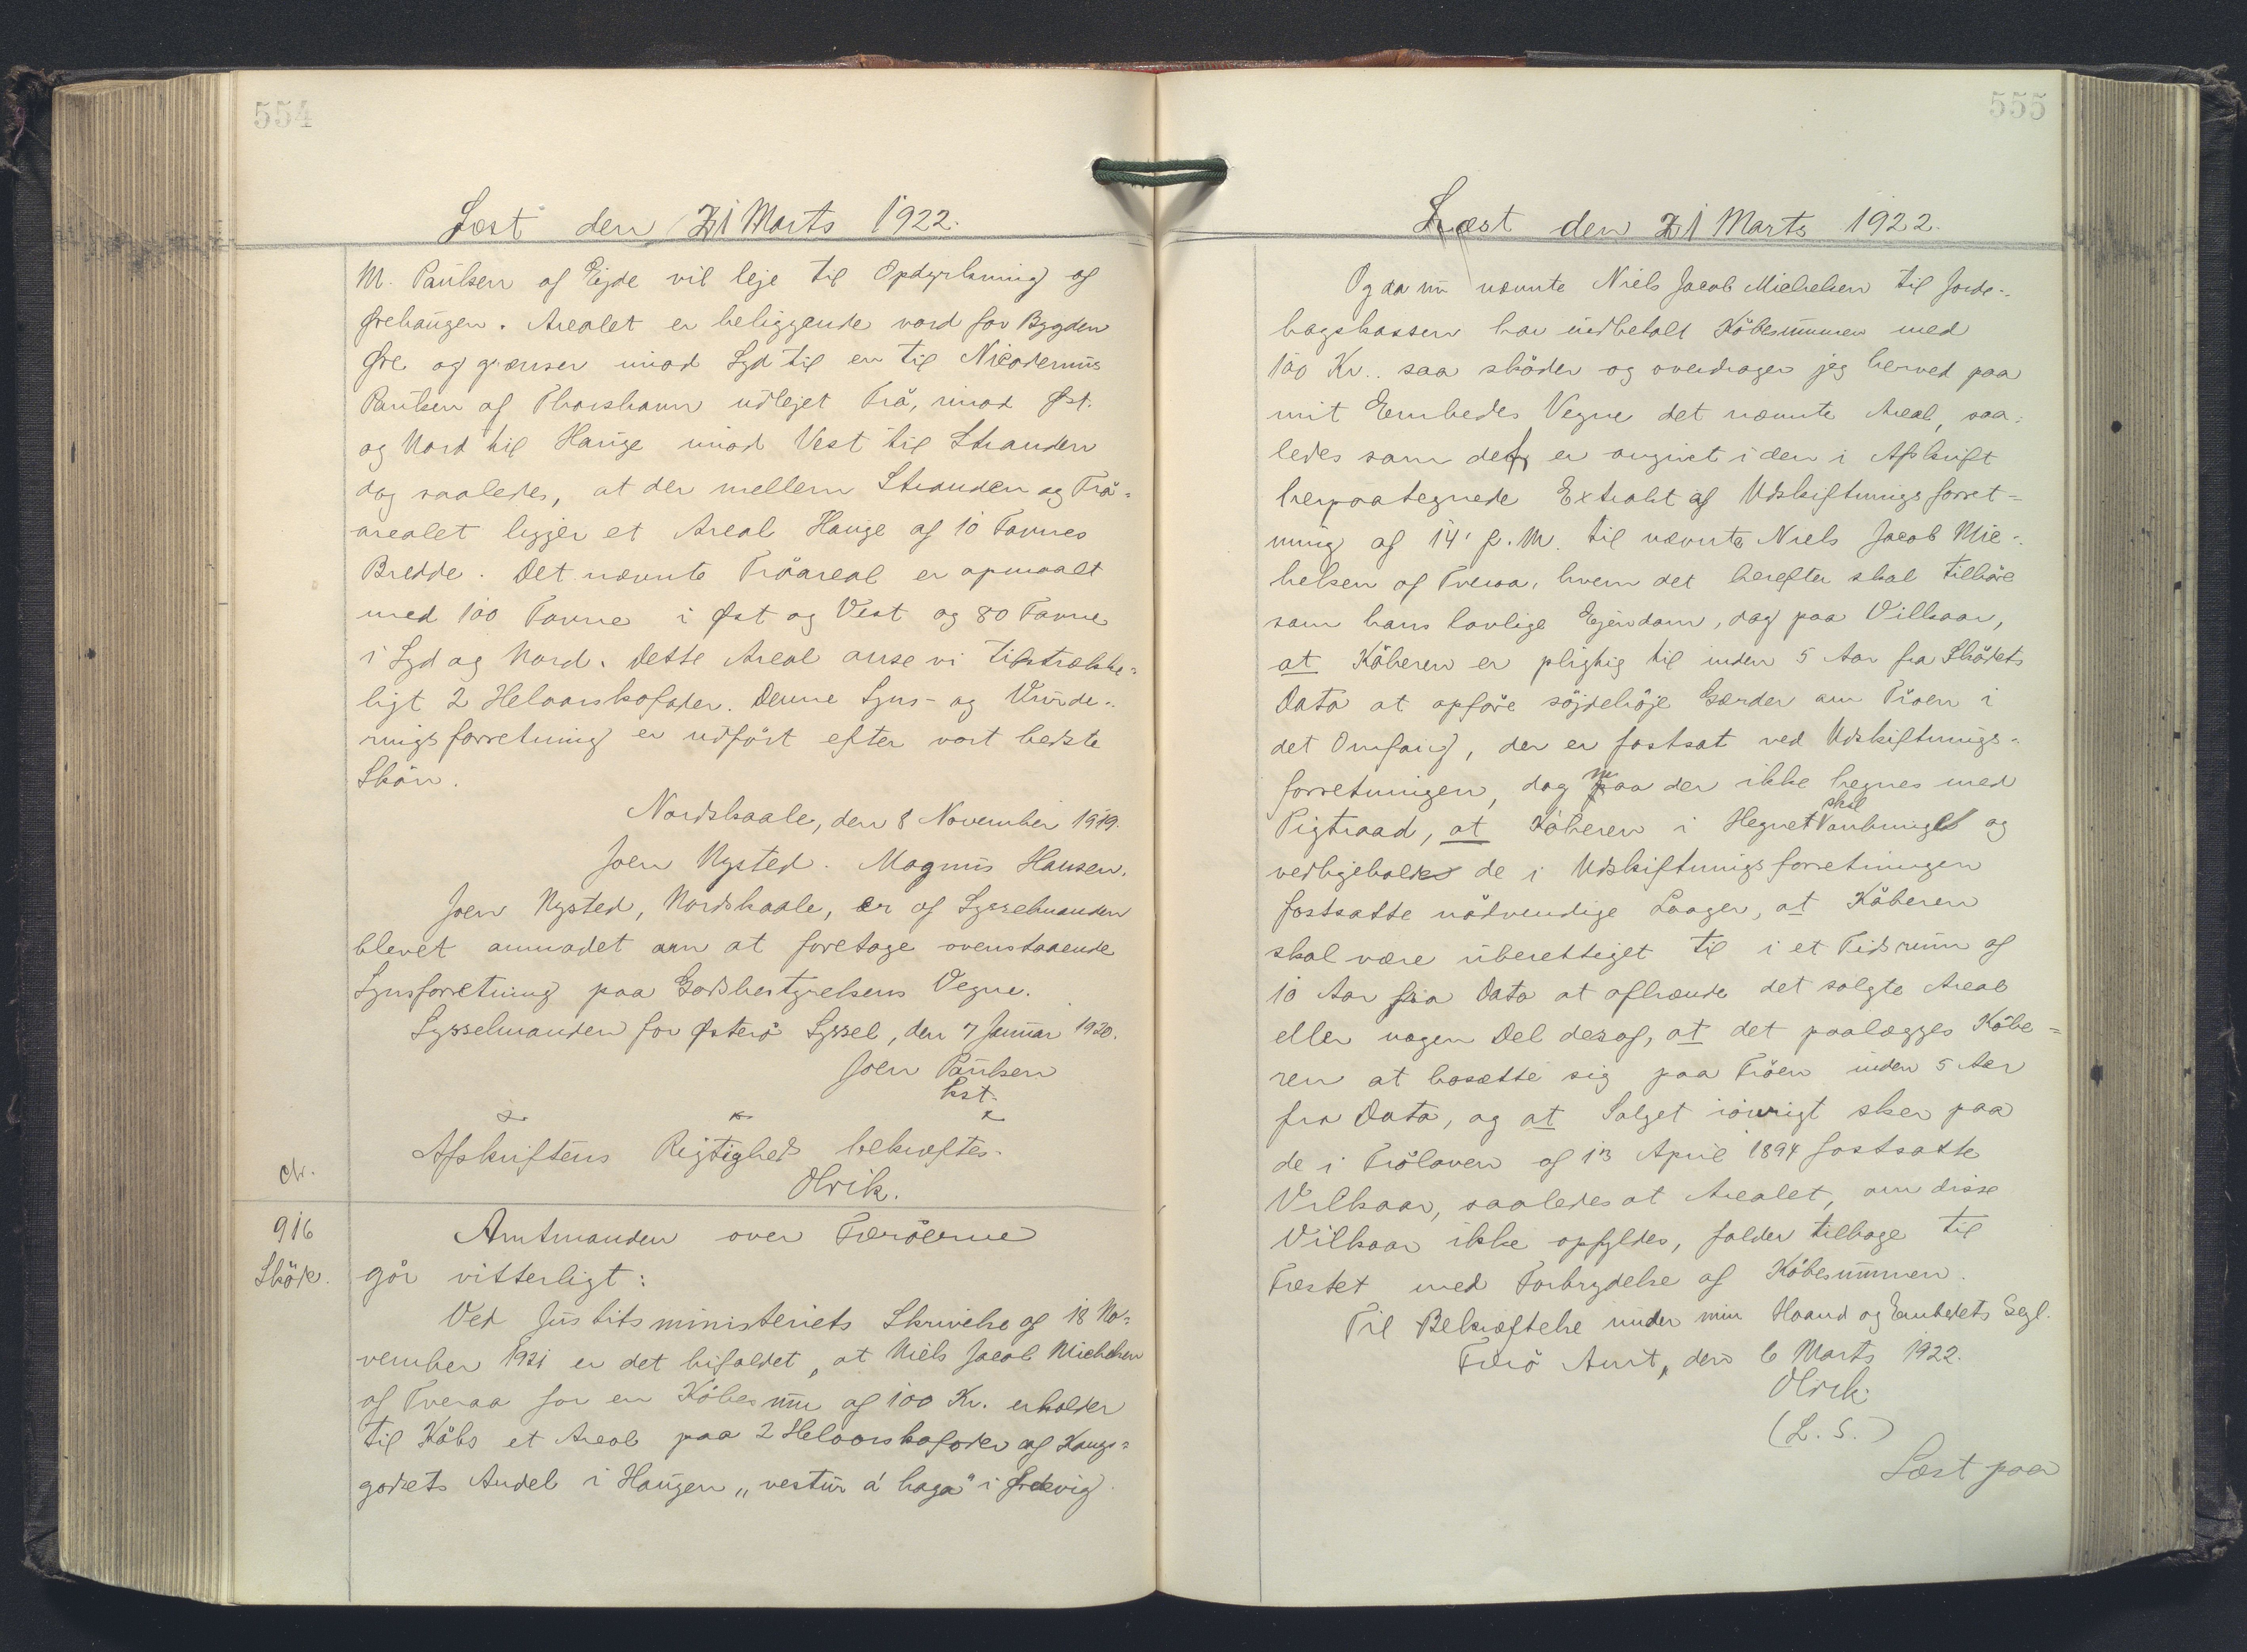 554
Læst den 21 Marts 1922.
M. Paulsen af Ejde vil leje til Opdyrkning og
Ørehaugen. Arealet er beliggende nord for Bygden
Øre og grænser imod Syd til en til Nicodemus
Paulsen af Thorshavn udlejet Trö, imod Øst.
og Nord til Hauge imod Vest til Stranden
dog saaledes, at der mellem Stranden og Trö=
arealet ligger et Areal Hauge af 10 Favnes
Bredde. Det nævnte Tröareal er opmaalt
med 100 Favne i Øst og Vest og 80 Favne
i Syd og Nord. Dette Areal anse vi tilstrække=
ligt 2 Helaarskofoder. Denne Syns- og Vurde=
ringsforretning er udfört efter vort bedste
Skön.
Nordskaale, den 8 November 1919.
Joen Nysted. Magnus Hansen.
Joen Nysted, Nordskaale, er af Sysselmanden
blevet anmodet om at foretage ovenstaaende
Synsforretning paa Godsbestyrelsens Vegne.
Sysselmanden for Østerö Syssel, den 7 Januar 1920.
Joen Paulsen
kst.
Afskriftens Rigtighed bekræftes.
Olrik.
916
Sköde.
Amtmanden over Færöerne
gör vitterligt:
Ved Justitsministeriets Skrivelse af 18 No=
vember 1921 er det bifaldet, at Niels Jacob Michelsen
af Tveraa for en Köbesum af 100 Kr. erholder
til Köbs et Areal paa 2 Helaarskofoder af Kongs=
godsets Andel i Haugen „vestur á haga" i Ørdevig.
555
Læst den 21 Marts 1922.
Og da nu nævnte Niels Jacob Michelsen til Jorde=
bogskassen har indbetalt Köbesummen med
100 Kr.. saa sköder og overdrager jeg herved paa
mit Embedes Vegne det nævnte Areal, saa=
ledes som det er angivet i den i Afskrift
herpaategnede Extrakt af Udskiftningsforret=
ning af 14' f. M. til nævnte Niels Jacob Mic=
helsen af Tveraa, hvem det herefter skal tilhöre
som hans lovlige Ejendom, dog paa Vilkaar,
at Köberen er pligtig til inden 5 Aar fra Sködets
Dato at opföre söjdehöje Gærder om Tröen i
det Omfang, der er fastsat ved Udskiftnings=
forretningen, dog maa der ikke hegnes med
Pigtraad, at Köberen i Hegnet skal anbringe og
vedligeholde de i Udskiftningsforretningen
fastsatte nödvendige Laager, at Köberen
skal være uberettiget til i et Tidsrum af
10 Aar fra Dato at afhænde det solgte Areal
eller nogen Del deraf, at det paalægges Köbe=
ren at bosætte sig paa Tröen inden 5 Aar
fra Dato, og at Salget iövrigt sker paa
de i Trölaven af 13 April 1894 fastsatte
Vilkaar, saaledes at Arealet, om disse
Vilkaar ikke opfyldes, falder tilbage til
Fæstet med Forbrydelse af Köbesummen.
Til Bekræftelse under min Haand og Embedets Segl.
Færö Amt, den 6 Marts 1922.
Olrik.
(L. S.)
Læst paa